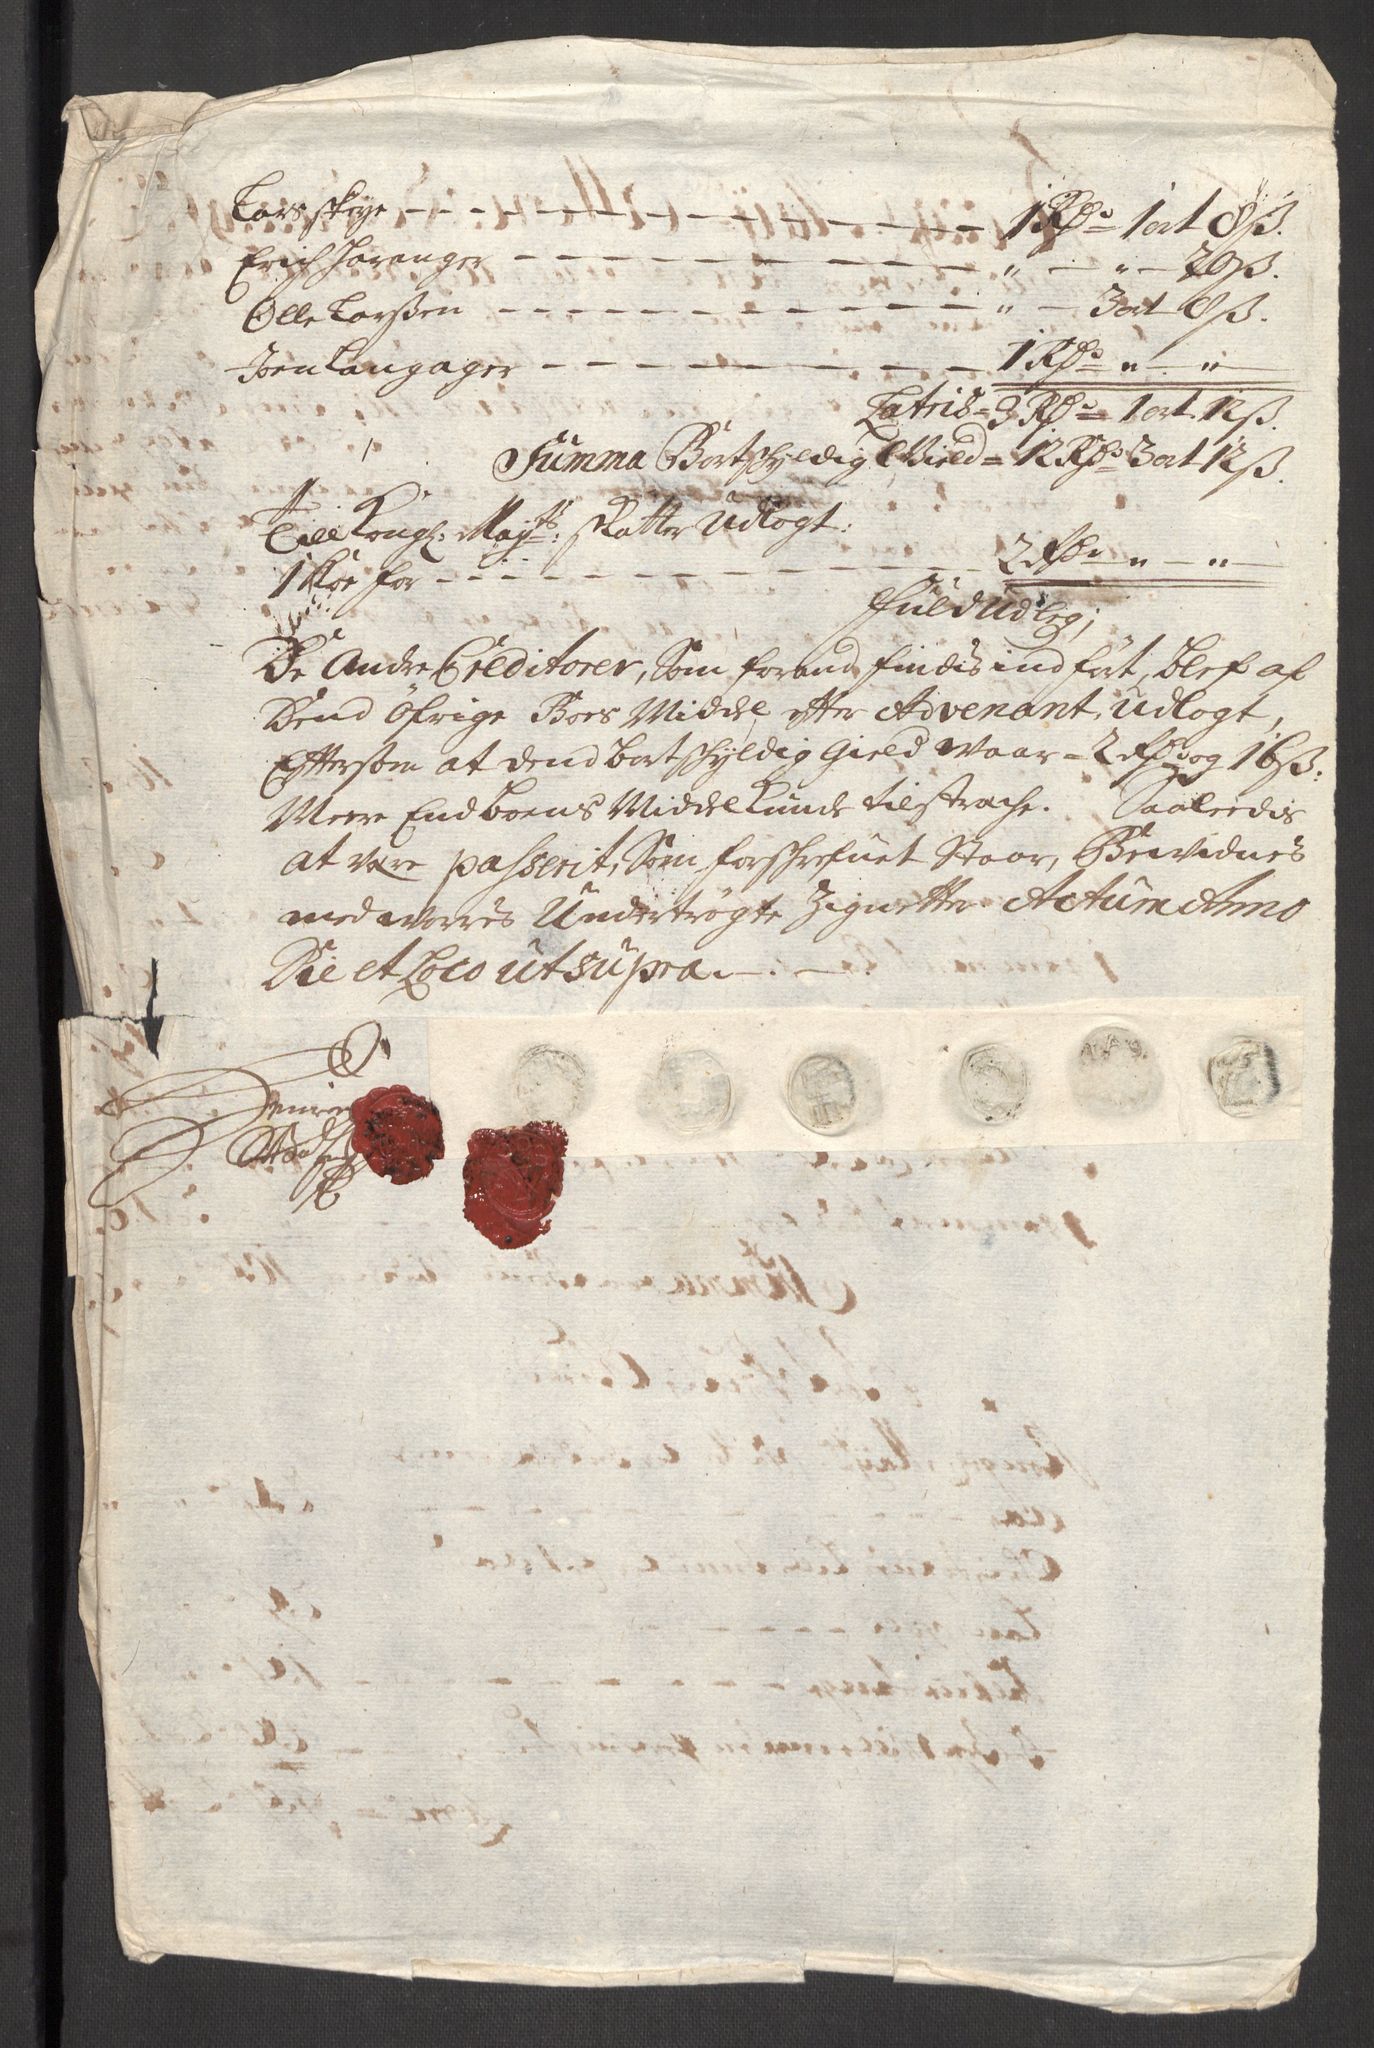 Lars skye - - - - 1 Rdr = 1 ort 8 ß.
Erich Haranger - - - - " - " - 20 ß.
Olle Larßen - - - - " - 3 ort 8 ß.
Joen Langager - - - - 1 Rdr " - "
Latris = 3 Rdr = 1 ort 12 ß.
Summa Bortschyldig Gield = 12 Rdr 3 ort 12 ß.
Till Kongl. Mayts: skatter Udlogt:
1 Koe for - - - - 2 Rdr " - "
Fuld Udleg;
De Andre Creditorer, Som forand findis indført, blef af
Dend Öfrige Boes Middel efter Advenant, Udlogt,
Eftersom at dend bortschyldig Gield waar = 2 Rdr og 16 ß:
Meere End boens Middel kunde tilstrache. Saaleedis
at være passerit, Som forschrefuet Staar, Bewidnes
med worres Undertrögte Zignetter Actum Anno
Die et Loco ut supra. - . -